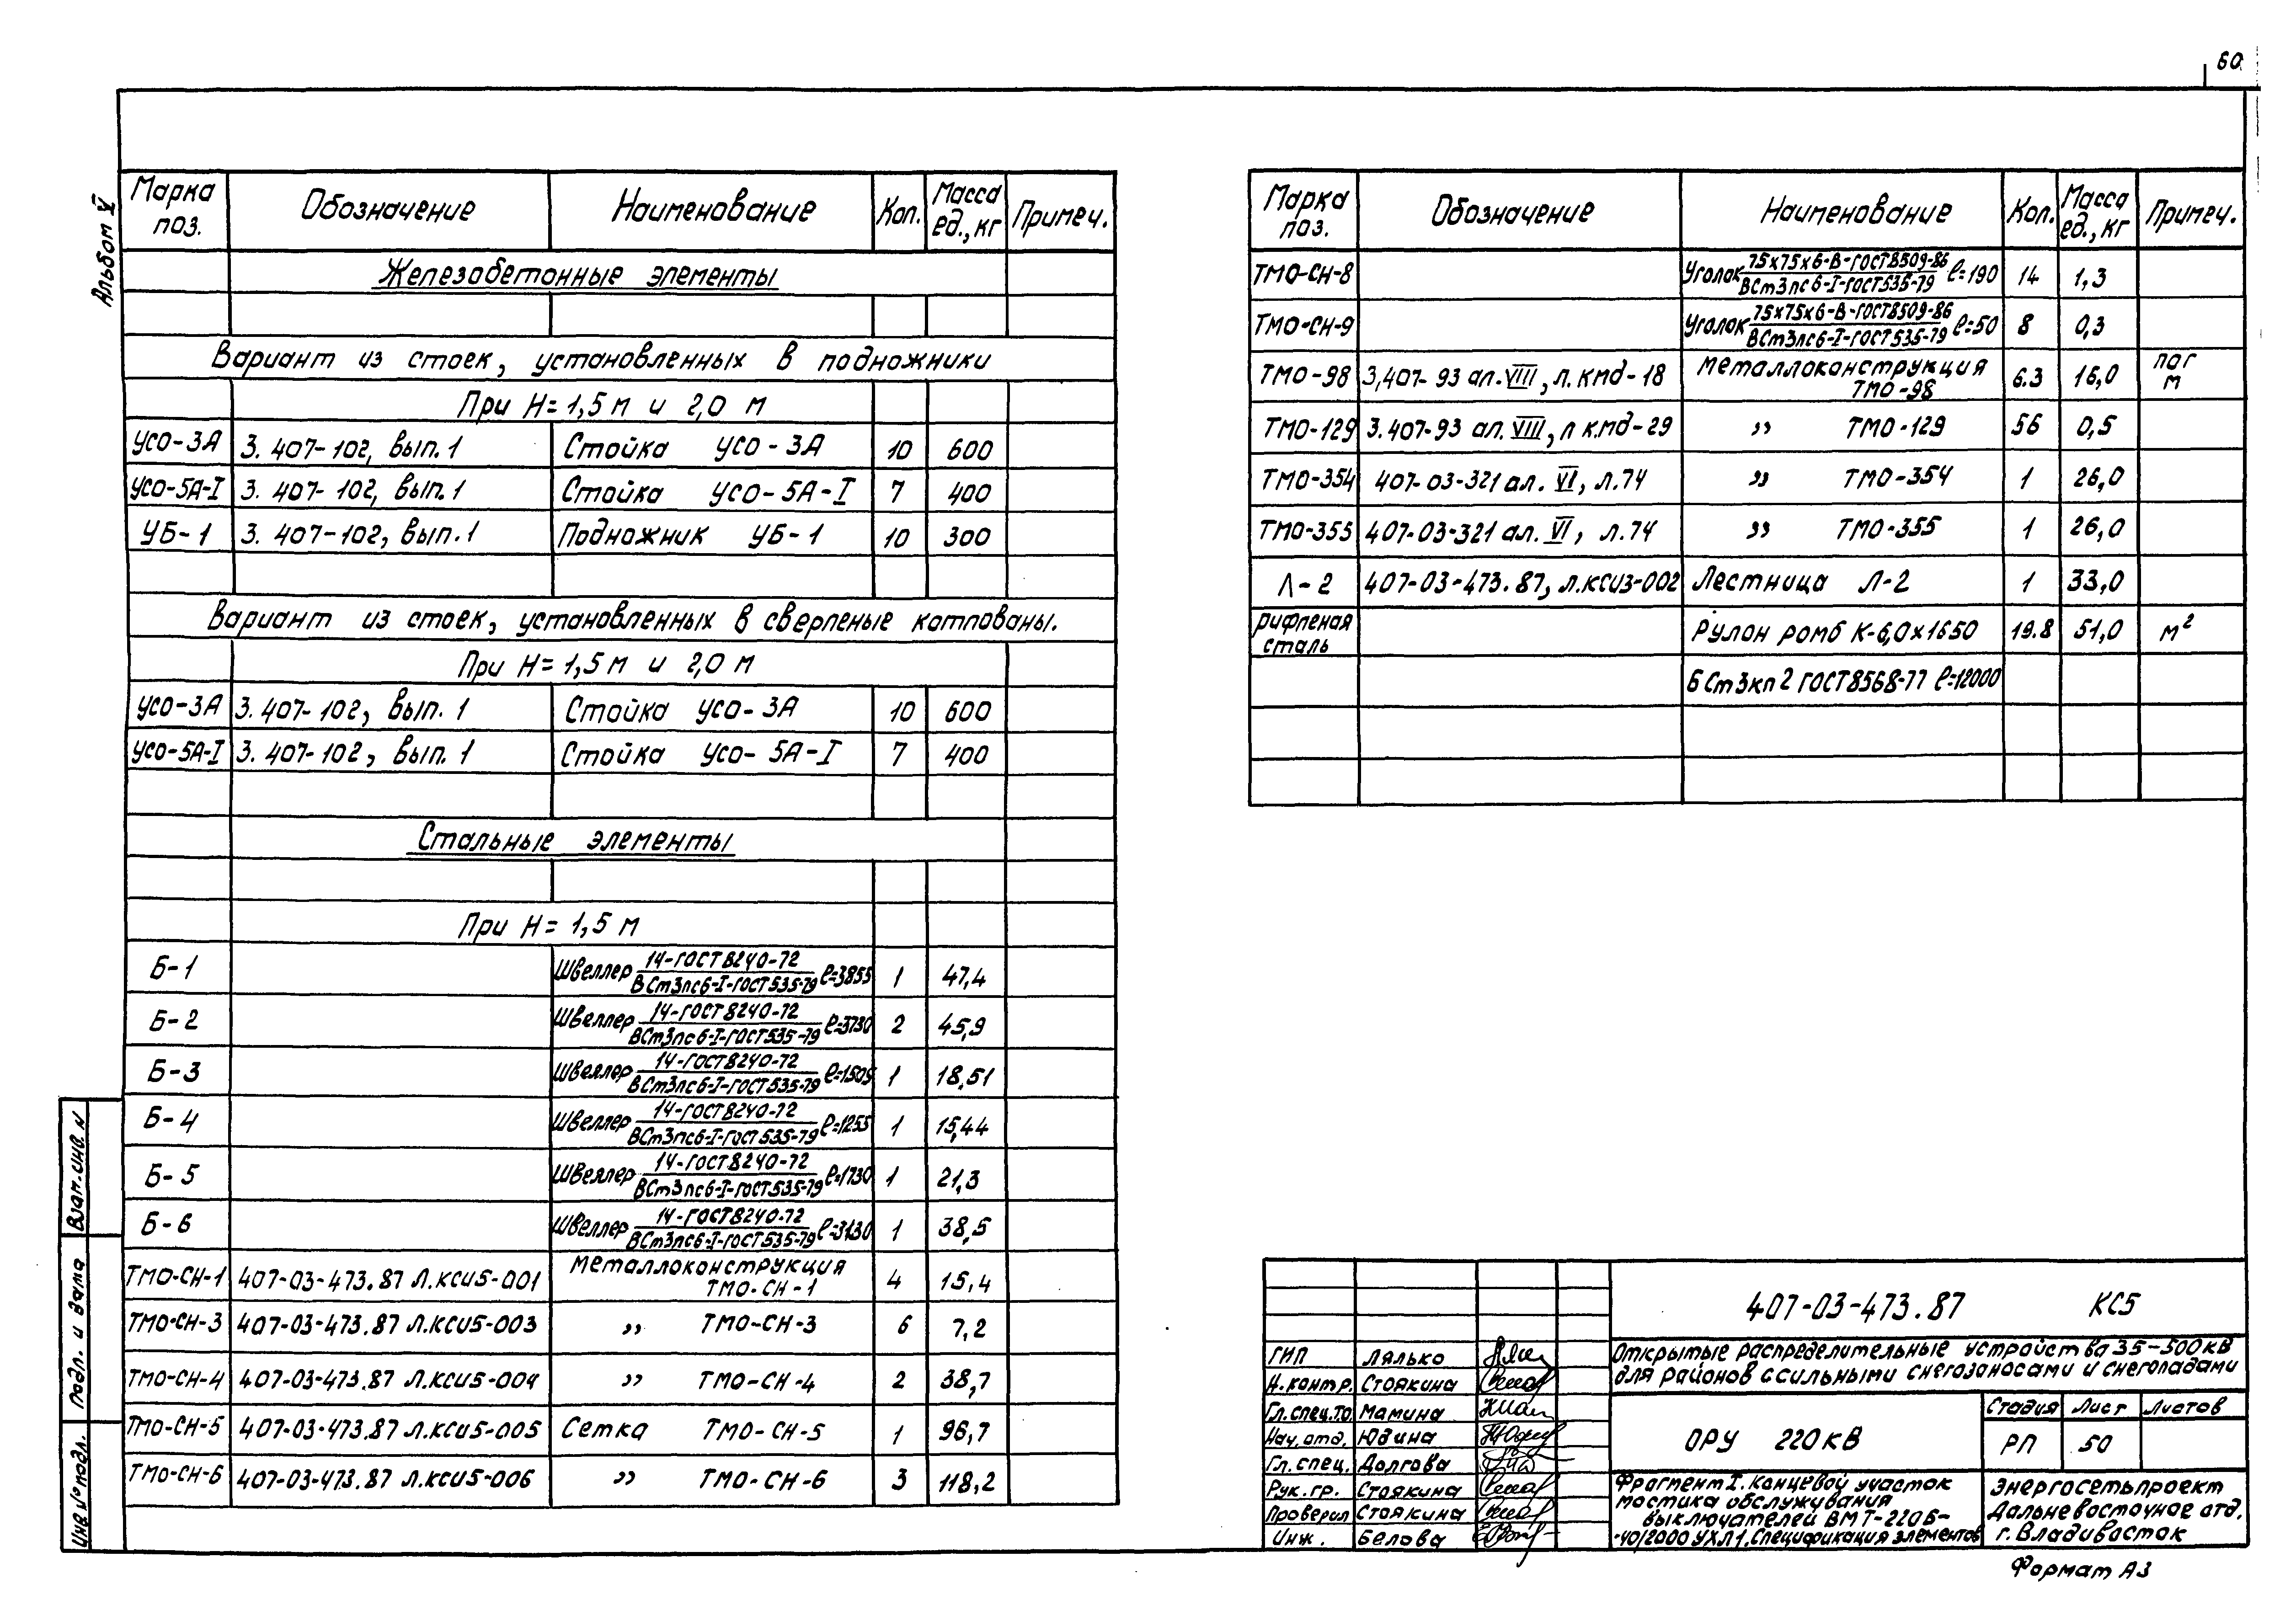 60
Альбом V
Марка поз. Обозначение Наименование Кол. Масса ед., кг Примеч.
Железобетонные элементы
Вариант из стоек, установленных в подножники
При H=1,5м и 2,0 м
УСО-3А 3.407-102, вып.1 Стойка УСО-3А 10 600
УСО-5А-I 3.407-102, вып.1 Стойка УСО-5А-I 7 400
УБ-1 3.407-102, вып.1 Подножник УБ-1 10 300
Вариант из стоек, установленных в сверленые котлованы.
При H=1,5м и 2,0 м
УСО-3А 3.407-102, вып.1 Стойка УСО-3А 10 600
УСО-5А-I 3.407-102, вып.1 Стойка УСО-5А-I 7 400
Стальные элементы
При H=1,5 м
Б-1 Швеллер 14-ГОСТ8240-72 / ВСт3пс6-I-ГОСТ535-79 ℓ=3855 1 47,4
Б-2 Швеллер 14-ГОСТ8240-72 / ВСт3пс6-I-ГОСТ535-79 ℓ=3730 2 45,9
Б-3 Швеллер 14-ГОСТ8240-72 / ВСт3пс6-I-ГОСТ535-79 ℓ=1505 1 18,51
Б-4 Швеллер 14-ГОСТ8240-72 / ВСт3пс6-I-ГОСТ535-79 ℓ=1255 1 15,44
Б-5 Швеллер 14-ГОСТ8240-72 / ВСт3пс6-I-ГОСТ535-79 ℓ=1730 1 21,3
Б-6 Швеллер 14-ГОСТ8240-72 / ВСт3пс6-I-ГОСТ535-79 ℓ=3130 1 38,5
ТМО-СН-1 407-03-473.87 Л.КСИ5-001 Металлоконструкция ТМО-СН-1 4 15,4
ТМО-СН-3 407-03-473.87 Л.КСИ5-003 ,, ТМО-СН-3 6 7,2
ТМО-СН-4 407-03-473.87 Л.КСИ5-004 ,, ТМО-СН-4 2 38,7
ТМО-СН-5 407-03-473.87 Л.КСИ5-005 Сетка ТМО-СН-5 1 96,7
ТМО-СН-6 407-03-473.87 Л.КСИ5-006 ,, ТМО-СН-6 3 118,2
Марка поз. Обозначение Наименование Кол. Масса ед., кг Примеч.
ТМО-СН-8 Уголок 75х75х6-В-ГОСТ8509-86 / ВСт3пс6-I-ГОСТ535-79 ℓ=190 14 1,3
ТМО-СН-9 Уголок 75х75х6-В-ГОСТ8509-86 / ВСт3пс6-I-ГОСТ535-79 ℓ=50 8 0,3
ТМО-98 3,407-93 ал.VIII, л.кмд-18 Металлоконструкция ТМО-98 6.3 16,0 пог м
ТМО-129 3.407-93 ал.VIII, л кмд-29 ,, ТМО-129 56 0,5
ТМО-354 407-03-321 ал. VI, л.74 ,, ТМО-354 1 26,0
ТМО-355 407-03-321 ал. VI, л.74 ,, ТМО-355 1 26,0
Л-2 407-03-473.87, л.КСИ3-002 Лестница Л-2 1 33,0
рифленая сталь Рулон ромб К-6,0х1650 19.8 51,0 м²
БСт3кп2 ГОСТ8568-77 ℓ=12000
407-03-473.87 КС5
Открытые распределительные устройства 35-500кВ
для районов с сильными снегозаносами и снегопадами
ГИП Лялько
Н.контр. Стоякина
Гл.спец.т.о. Мамина
Нач.отд. Юдина
Гл.спец. Долгова
Рук.гр. Стоякина
Проверил Стоякина
Инж. Белова
ОРУ 220кВ
Стадия Лист Листов
РП 50
Фрагмент I. Концевой участок
мостика обслуживания
выключателей ВМТ-220Б-
-40/2000 УХЛ1. Спецификация элементов
Энергосетьпроект
Дальневосточное отд.
г. Владивосток
Формат А3
Взам.инв. N
Подп. и дата
Инв. № подл.